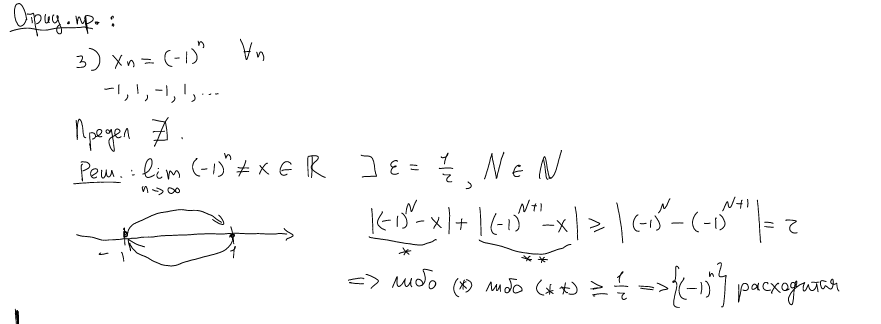 Отриц. пр. :
3) xₙ = (-1)ⁿ ∀n
-1, 1, -1, 1, ...
Предел ∄.
Реш. : lim n→∞ (-1)ⁿ ≠ x ∈ ℝ ] ε = 1/2, N ∈ ℕ
|(-1)ᴺ - x| + |(-1)ᴺ⁺¹ - x| ≥ |(-1)ᴺ - (-1)ᴺ⁺¹| = 2
* **
-1 1
=> либо (*) либо (**) ≥ 1/2 => {(-1)ⁿ} расходится